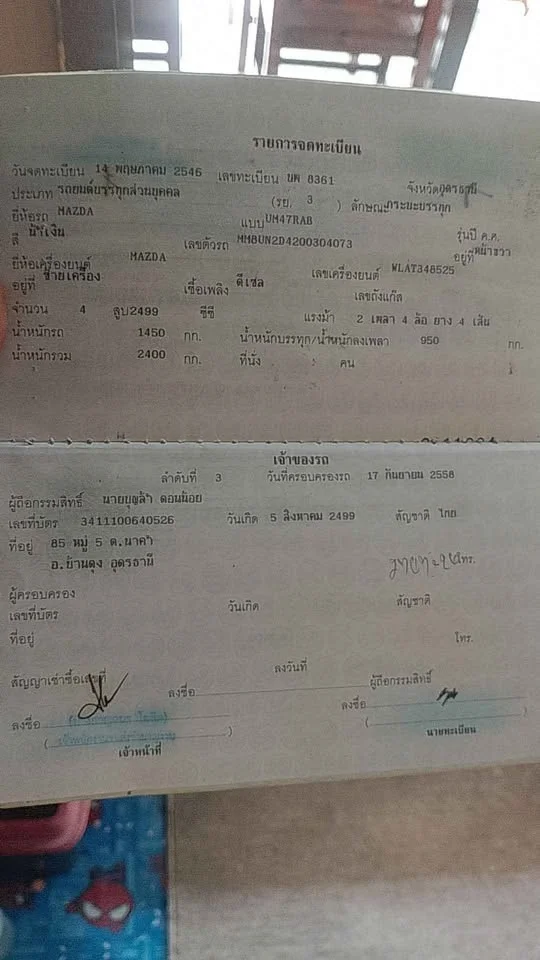 รายการจดทะเบียน
วันจดทะเบียน 14 พฤษภาคม 2546 เลขทะเบียน บพ 8361 จังหวัด อุดรธานี
ประเภท รถยนต์บรรทุกส่วนบุคคล (รย. 3 ) ลักษณะ กระบะบรรทุก
ยี่ห้อรถ MAZDA แบบ UM47RAB รุ่นปี ค.ศ.
สี น้ำเงิน เลขตัวรถ MM8UN2D4200304073 อยู่ที่ หน้าขวา
ยี่ห้อเครื่องยนต์ MAZDA เลขเครื่องยนต์ WLAT348525
อยู่ที่ ซ้ายเครื่อง เชื้อเพลิง ดีเซล เลขถังแก๊ส
จำนวน 4 สูบ 2499 ซีซี แรงม้า 2 เพลา 4 ล้อ ยาง 4 เส้น
น้ำหนักรถ 1450 กก. น้ำหนักบรรทุก/น้ำหนักลงเพลา 950 กก.
น้ำหนักรวม 2400 กก. ที่นั่ง คน
เจ้าของรถ
ลำดับที่ 3 วันที่ครอบครองรถ 17 กันยายน 2558
ผู้ถือกรรมสิทธิ์ นายบุญล้ำ ดอนน้อย
เลขที่บัตร 3411100640526 วันเกิด 5 สิงหาคม 2499 สัญชาติ ไทย
ที่อยู่ 85 หมู่ 5 ต.นาคำ
อ.บ้านดุง อุดรธานี โทร.
ผู้ครอบครอง
เลขที่บัตร วันเกิด สัญชาติ
ที่อยู่ โทร.
สัญญาเช่าซื้อเลขที่ ลงวันที่
ลงชื่อ ผู้ถือกรรมสิทธิ์
ลงชื่อ ลงชื่อ
( ) ( )
เจ้าหน้าที่ นายทะเบียน